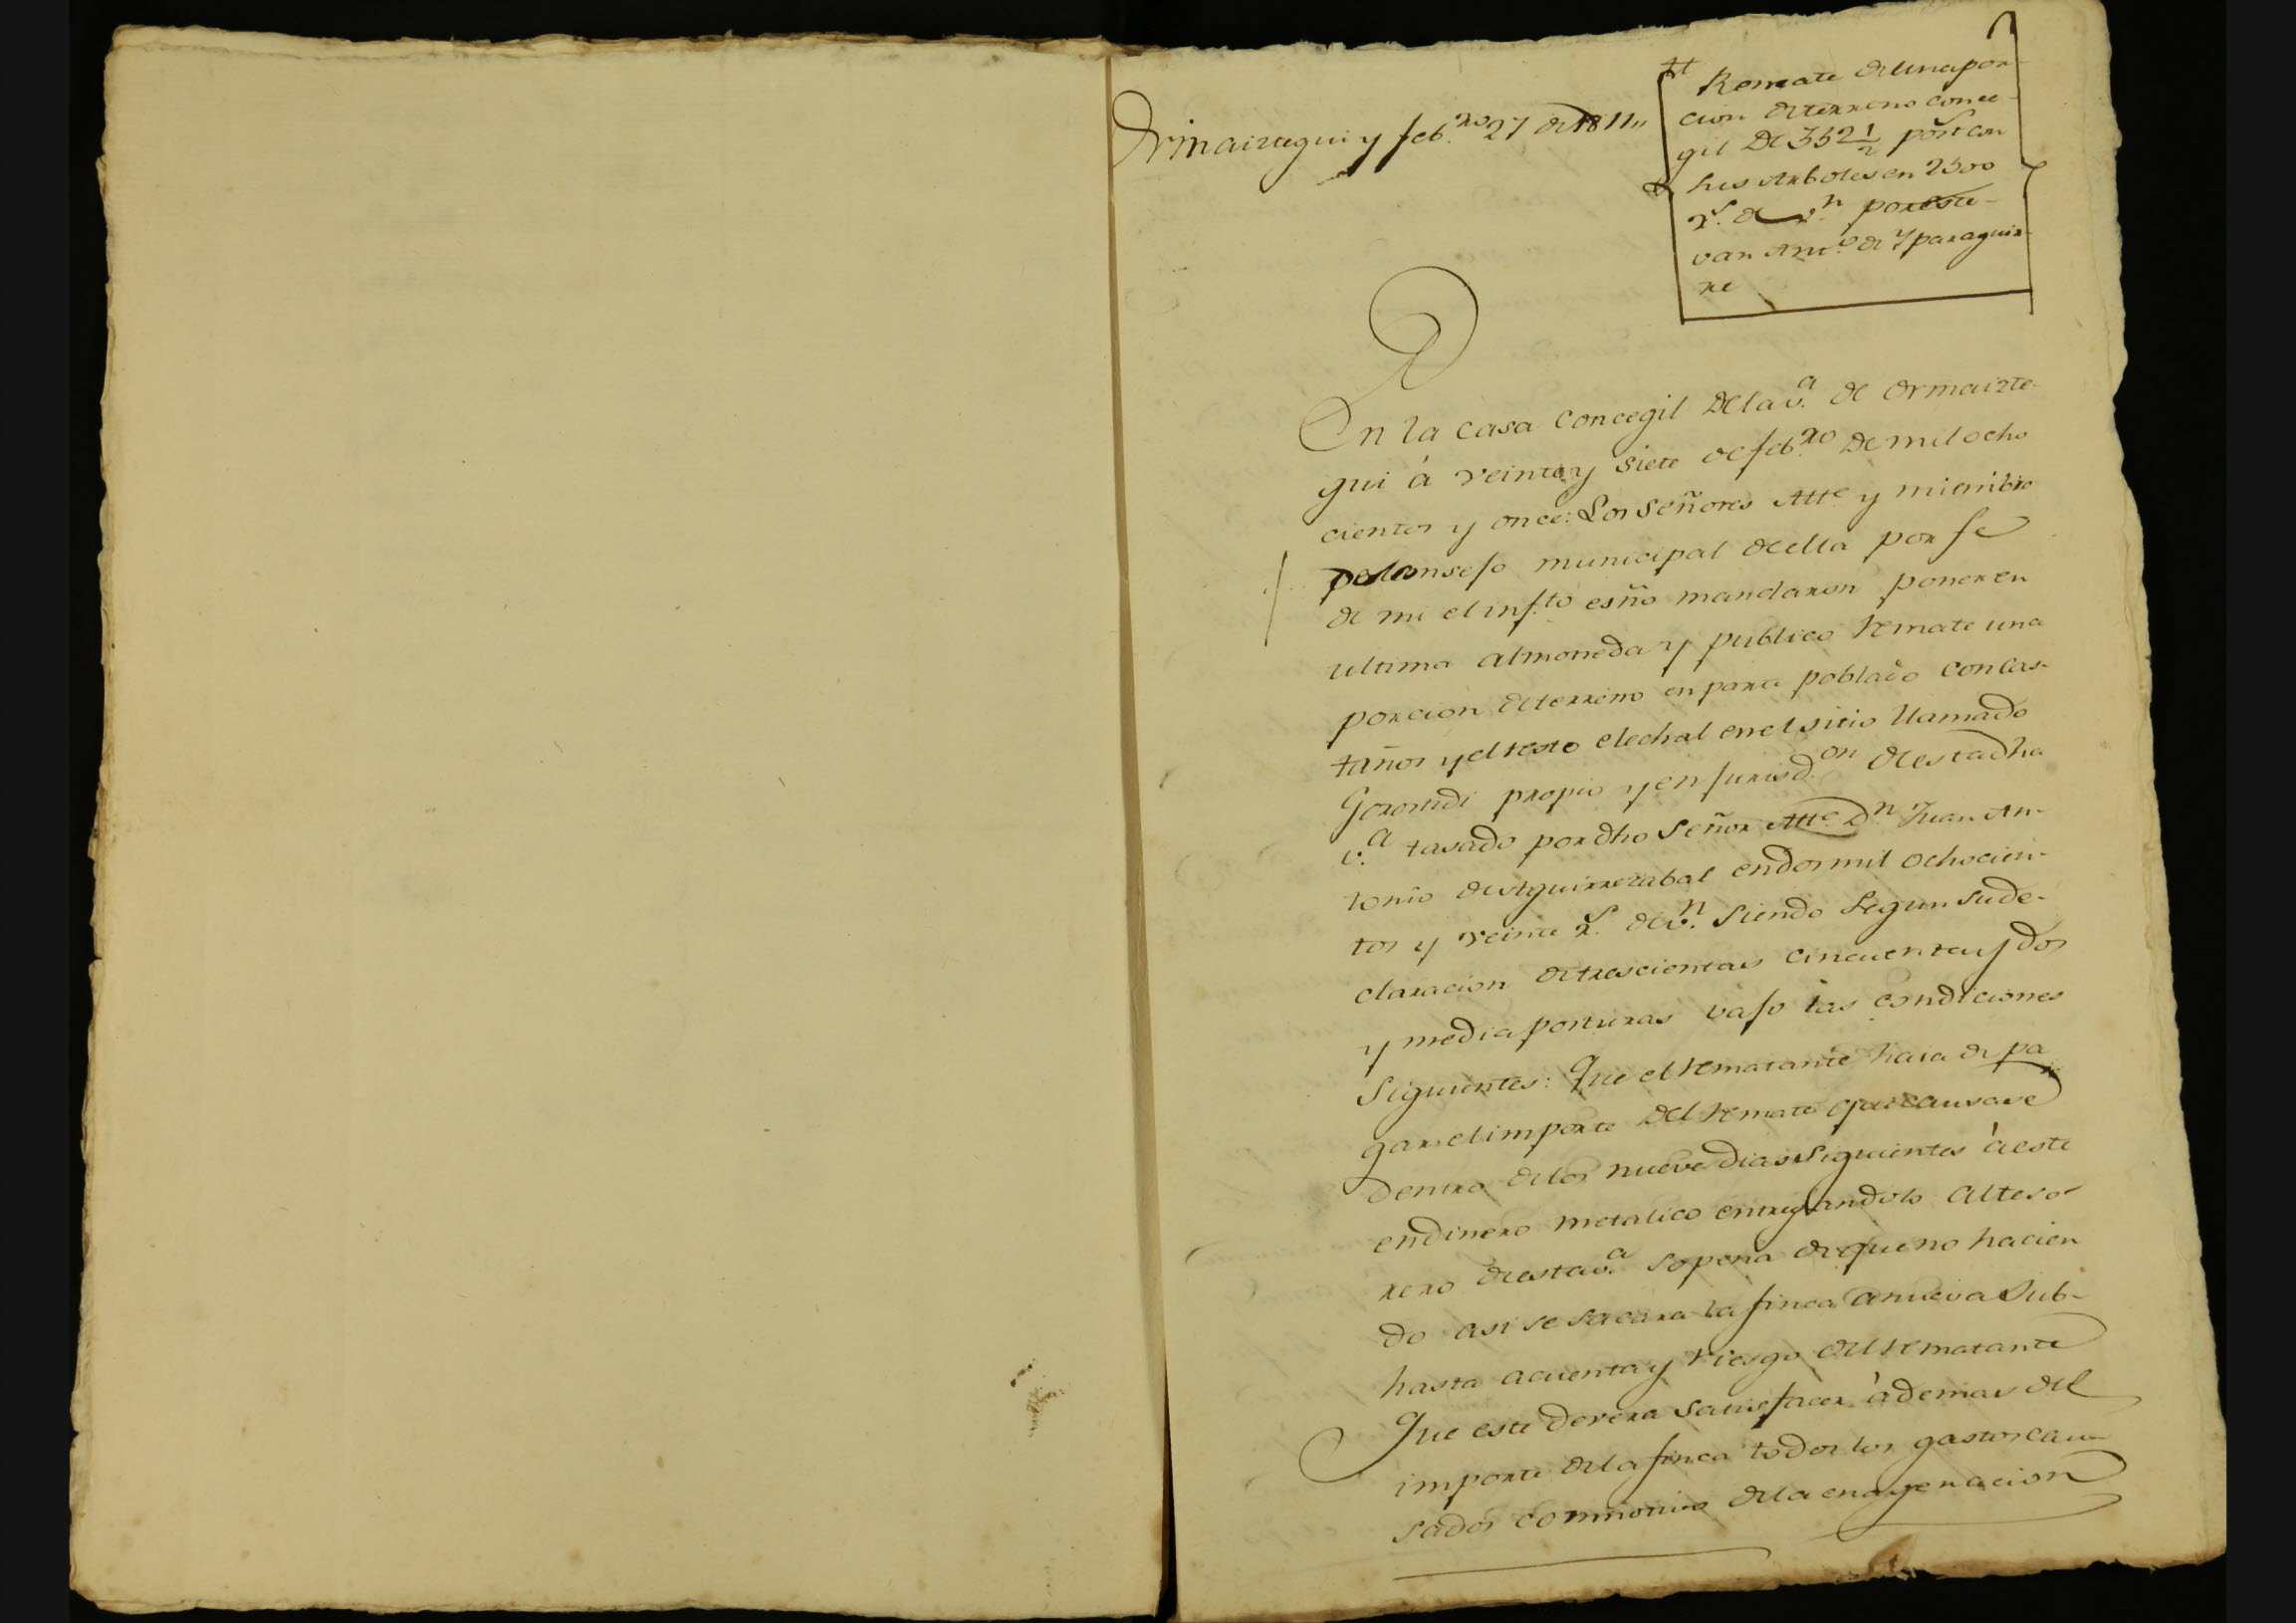 Ormaiztegui y feb.ro 27 de 1811,,
Remate de una por-
cion de terreno conce-
gil de 352 1/2 post.s con
sus Arboles en 2500
r.s de v.n por este-
van Ant.o de Yparaguir-
re
En la casa concegil de la v.a de Ormaizte-
gui à veinte y siete de feb.ro de mil ocho
cientos y once: Los Señores Alle y miembro
del consejo municipal de ella por fe
de mi el inf.to esño mandaron poner en
ultima almoneda y publico remate una
porcion de terreno en parte poblado con cas-
taños y el resto elechal en el sitio llamado
propio y en jurisd.on de esta dha
v.a tasado por dho Señor Alle D.n Juan An-
tonio de Aguirrezabal en dos mil ochocien-
tos y veinte r.s de v.n siendo segun su de-
claracion de trescientas cincuenta y dos
y media posturas vajo las condiciones
siguientes: Que el rematante haia de pa
gar el importe del remate que causase
dentro de los nueve dias siguientes à este
en dinero metalico entregandolo al teso-
rero de esta v.a so pena de que no hacien
do asi se sacara la finca a nueva sub-
hasta a cuenta y riesgo del rematante
Que este devera satisfacer àdemas del
importe de la finca todos los gastos cau-
sados con motivo de la enagenacion